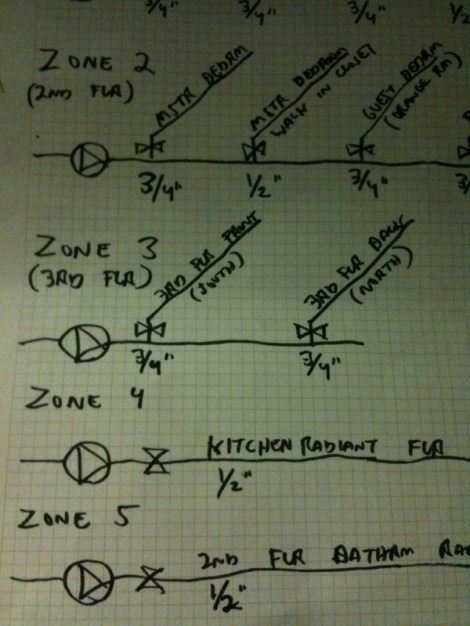 3/4" 3/4" 3/4" 1/2
ZONE 2
(2ND FLR)
MSTR BEDRM
MSTR BEDROOM
WALK IN CLOSET
GUEST BEDRM
(ORANGE RM)
3/4" 1/2" 3/4" 3/
ZONE 3
(3RD FLR)
3RD FLR FRONT
(SOUTH)
3RD FLR BACK
(NORTH)
3/4" 3/4"
ZONE 4
KITCHEN RADIANT FLR
1/2"
ZONE 5
2ND FLR BATHRM RAD
1/2"